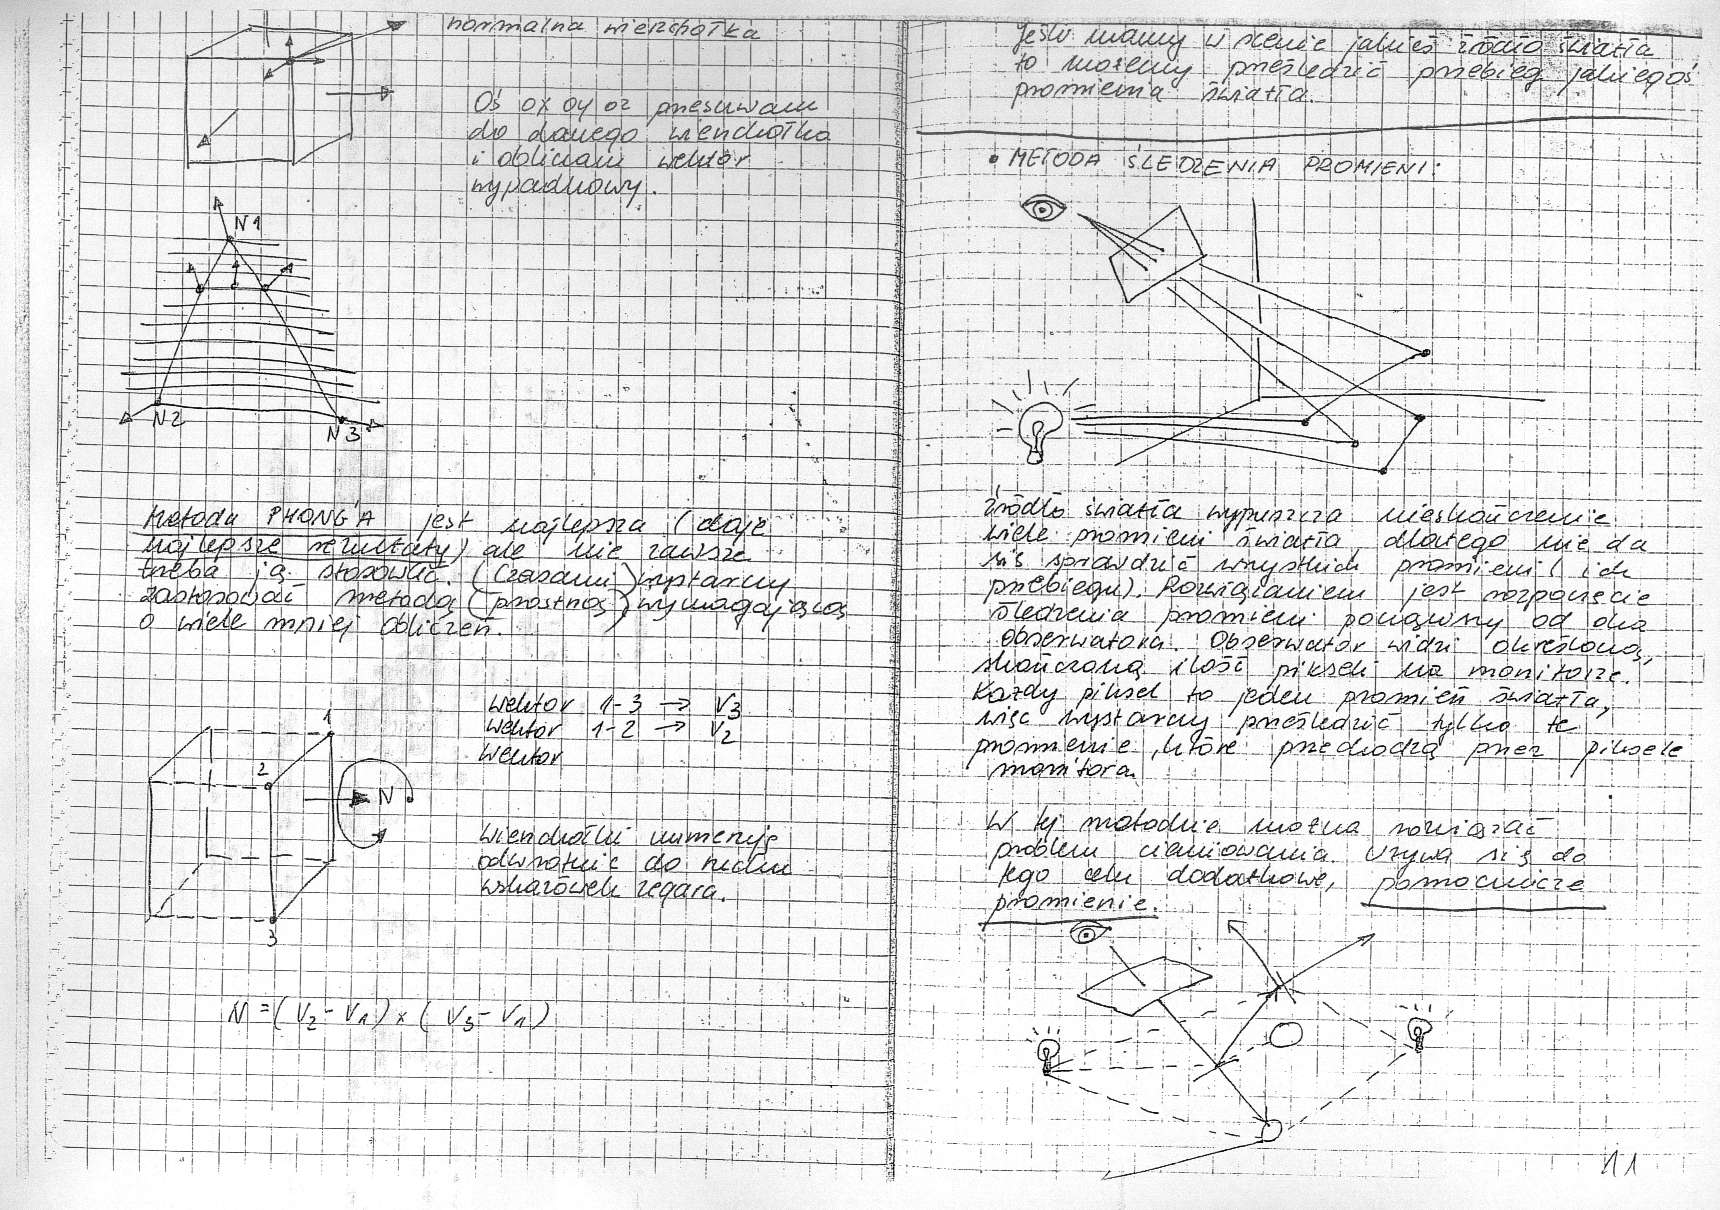 normalna wierzchołka
Oś ox oy oz przesuwam
do danego wierzchołka
i obliczam wektor
wypadkowy.
N1
N2
N3
Metoda PHONG'A jest najlepsza (daje
najlepsze rezultaty) ale nie zawsze
trzeba ją stosować. (Czasami) wystarczy
zastosować metodę (prostszą) wymagającą
o wiele mniej obliczeń.
Wektor 1-3 → V3
Wektor 1-2 → V2
Wektor
1
2
N
3
Wierzchołki numeruję
odwrotnie do ruchu
wskazówek zegara.
N = (V2 - V1) x (V3 - V1)
Jeśli mamy w scenie jakieś źródło światła
to możemy prześledzić przebieg jakiegoś
promienia światła.
• METODA ŚLEDZENIA PROMIENI:
Źródło światła wypuszcza nieskończenie
wiele promieni światła, dlatego nie da
się sprawdzić wszystkich promieni (ich
przebiegu). Rozwiązaniem jest rozpoczęcie
śledzenia promieni począwszy od oka
obserwatora. Obserwator widzi określoną,
skończoną ilość pikseli na monitorze.
Każdy piksel to jeden promień światła,
więc wystarczy prześledzić tylko te
promienie, które przechodzą przez piksele
monitora.
W tej metodzie można rozwiązać
problem cieniowania. Używa się do
tego celu dodatkowe, pomocnicze
promienie.
11